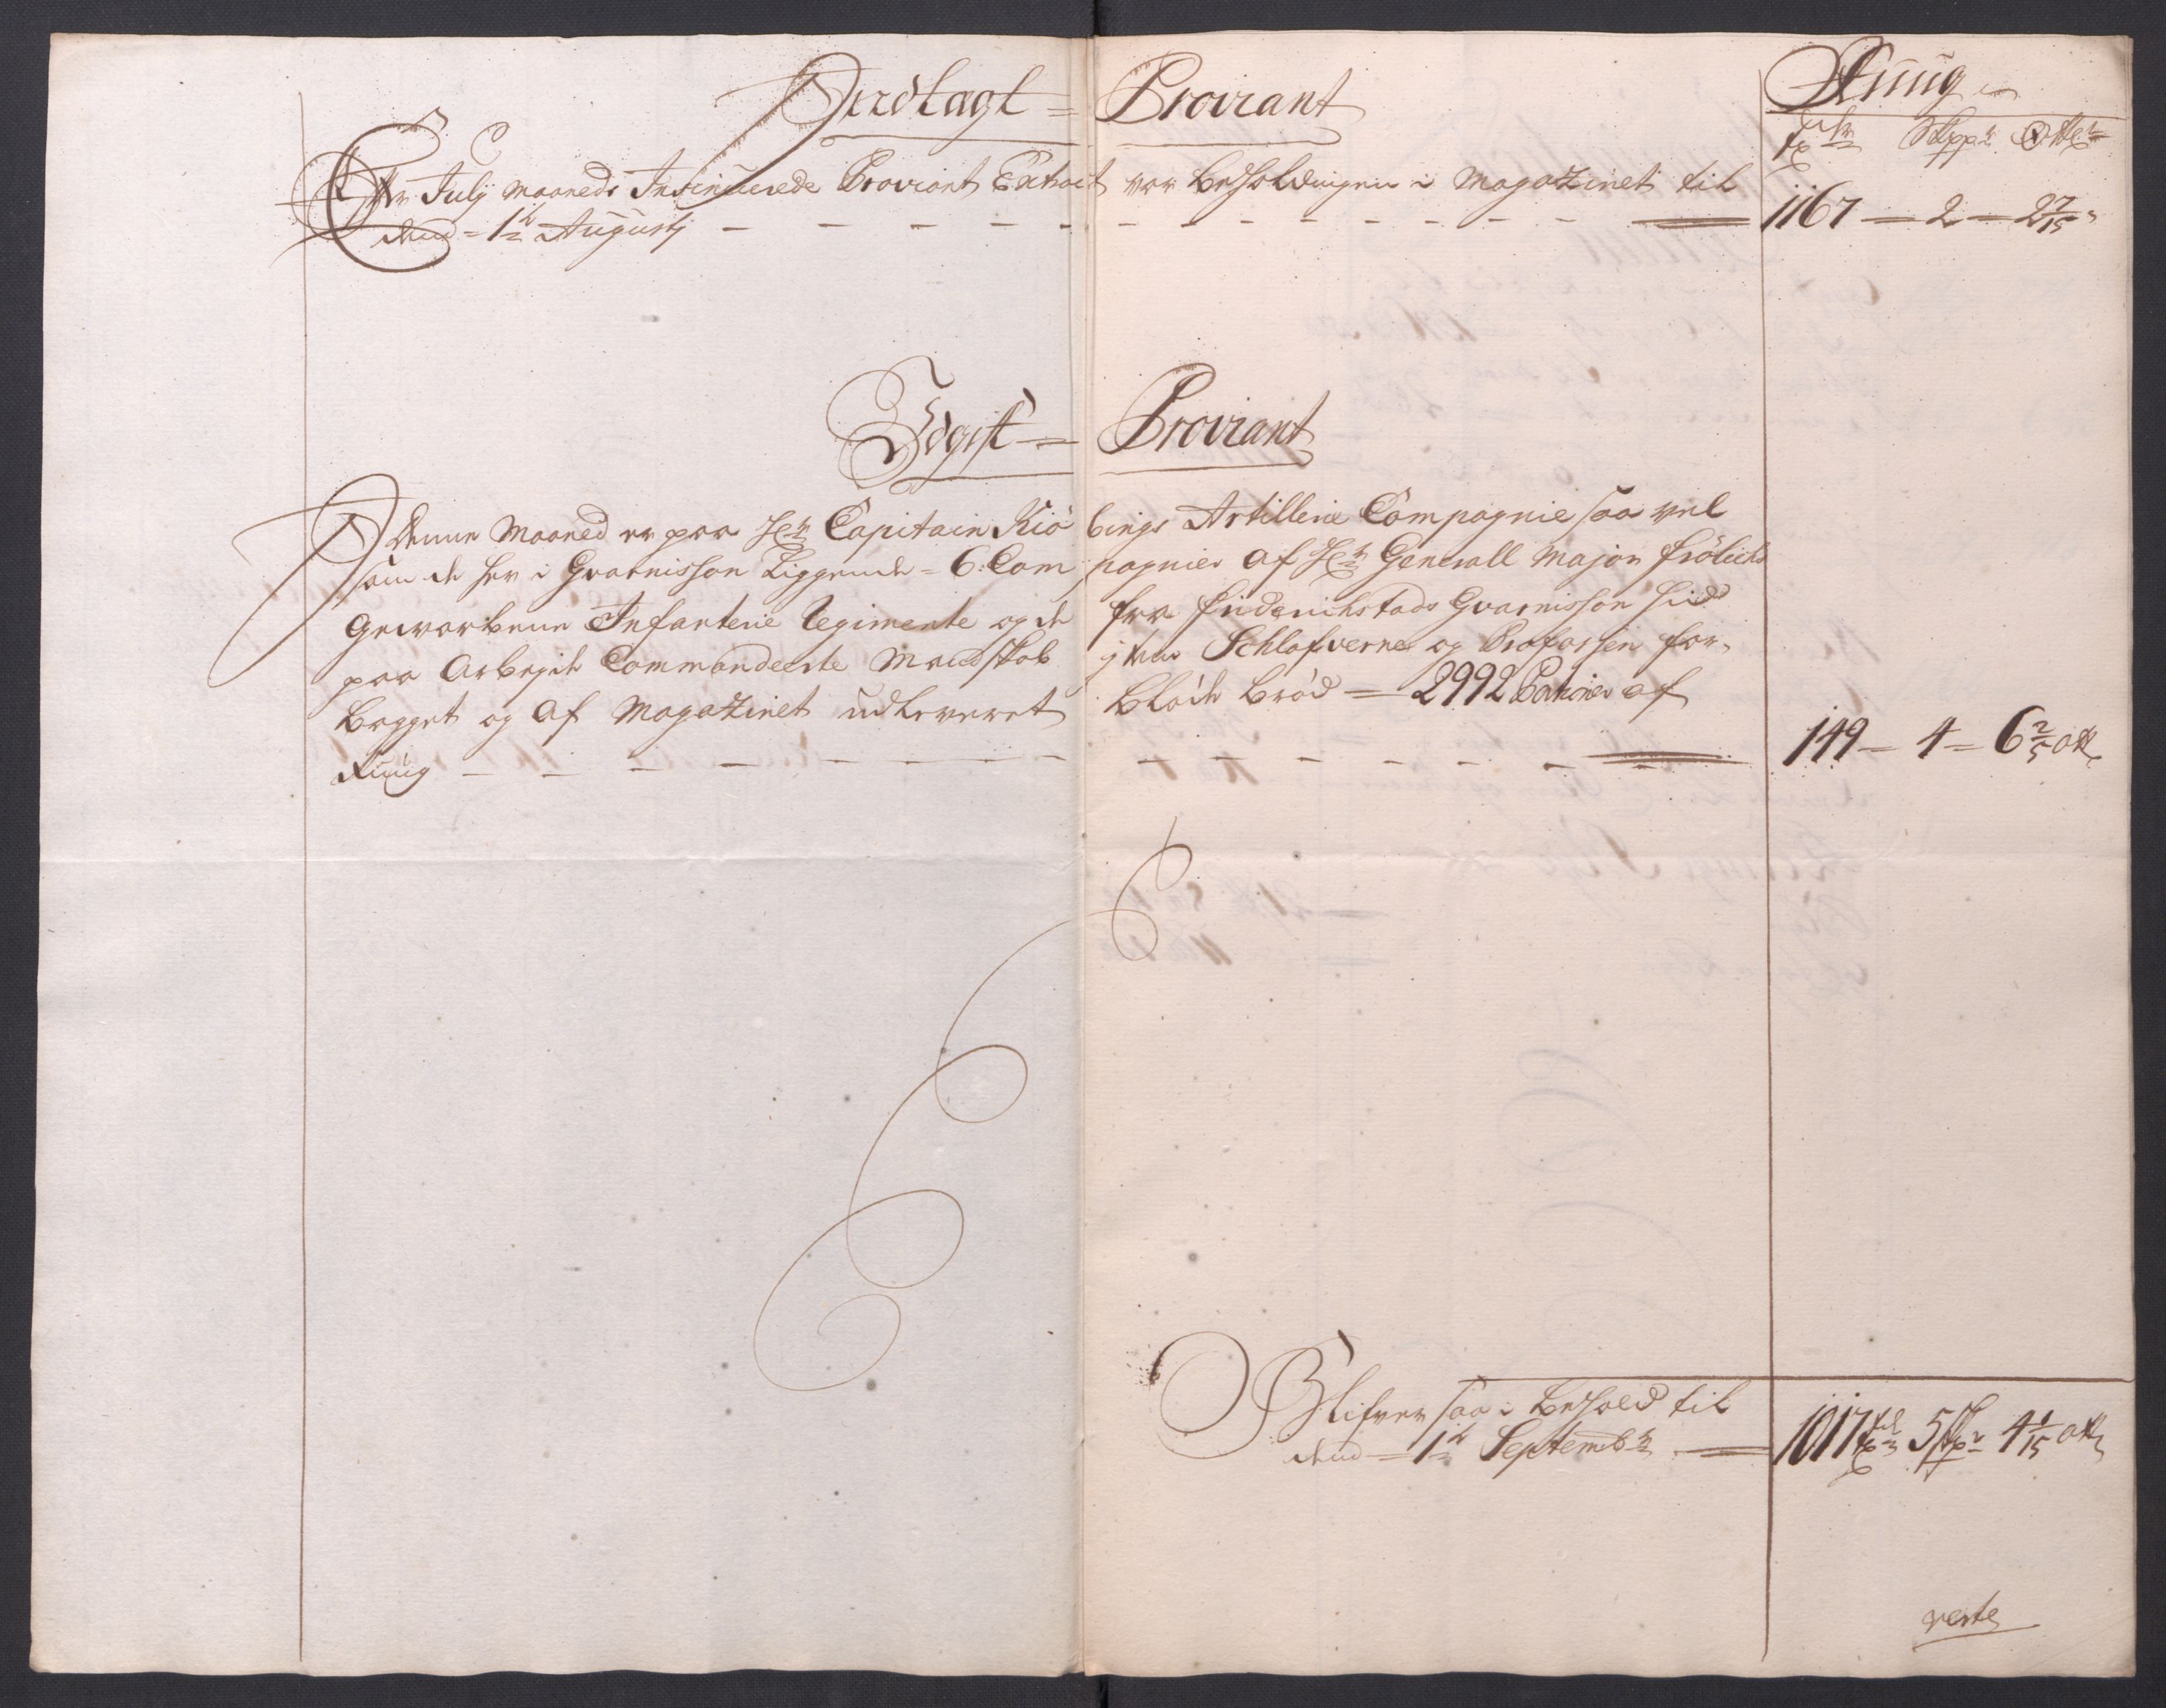 Indtægt = Proviant
Ruug
Tdr Skppr Ottr
Efter Julij Maaneds Insinuerede Proviant Extract var beholdningen i Magazinet til
dend = 1te Augustj — 1167 — 2 — 2 7/15
Udgift = Proviant
I denne Maaned er paa Hr Capitain Kiöbings Artillerie Compagnie saa vel
som de her i Gvarnisson Liggende = 6: Compagnier af Hr Generall Major Frölichs
Gevorbene Infanterie Regimente og de fra Friderichstads Gvarnisson hid
paa Arbejde Commanderede Mandskab Schlafverne og Profossen for,,
bagget og af Magazinet udleveret blöde bröd = 2992 Portioner af
Ruug — 149 — 4 — 6 2/5 ott
Blifver saa i behold til
dend = 1te Septembr — 1017 tdr 5 skpr 4 1/15 ott
verte